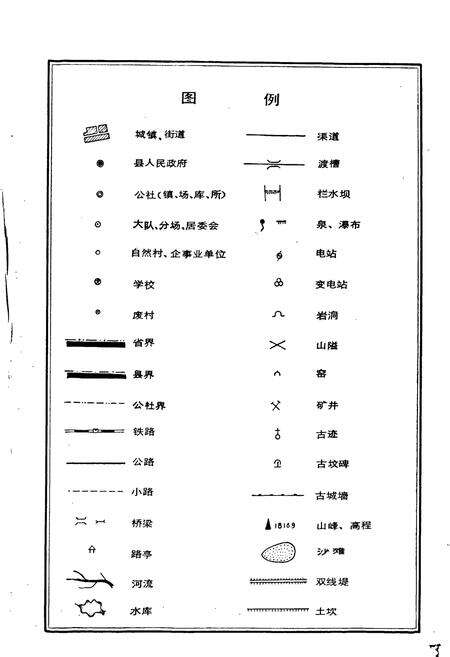 图 例
城镇、街道 渠道
县人民政府 渡槽
公社(镇、场、库、所) 栏水坝
大队、分场、居委会 泉、瀑布
自然村、企事业单位 电站
学校 变电站
废村 岩洞
省界 山隘
县界 窑
公社界 矿井
铁路 古迹
公路 古坟碑
小路 古城墙
桥梁 1816.9 山峰、高程
路亭 沙滩
河流 双线堤
水库 土坎